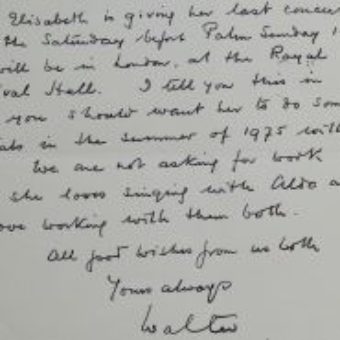 Elisabeth is giving her last concert
the Saturday before Palm Sunday 1
will be in London, at the Royal
val Hall. I tell you this in
you should want her to do som
als in the summer of 1975 with
We are not asking for work
she loves singing with Aldo a
ove working with them both.
All good wishes from us both
Yours always
Walter